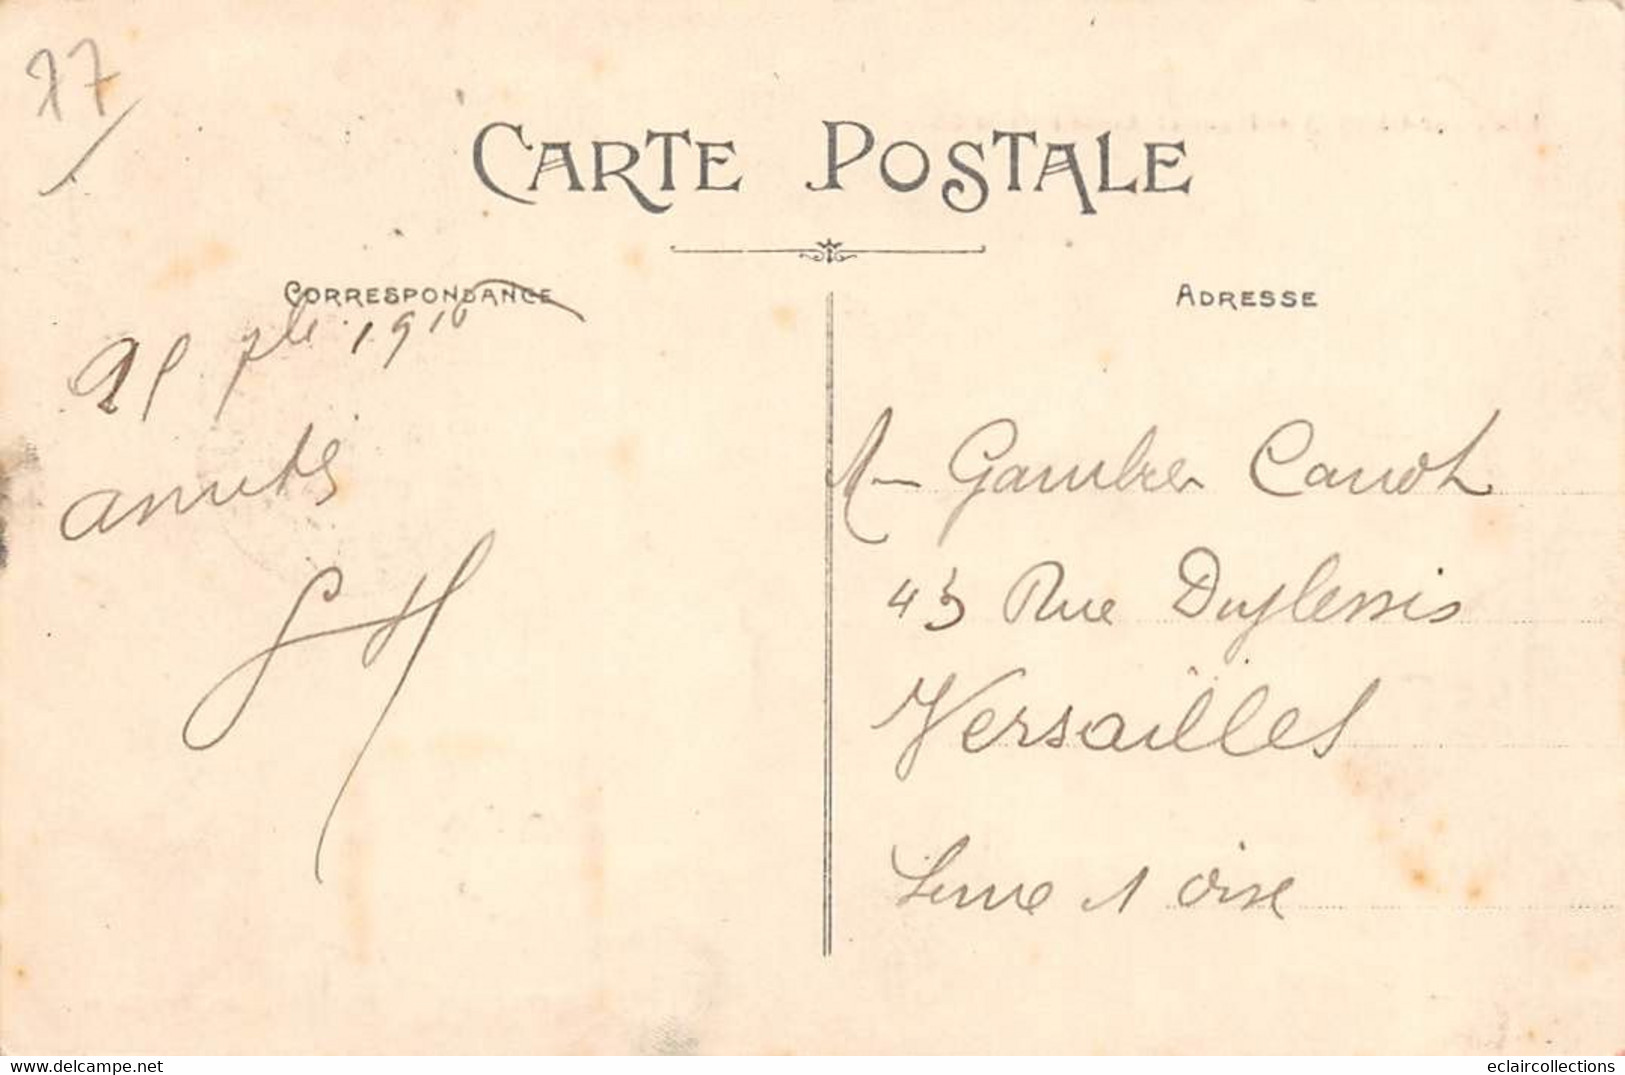 77
CARTE POSTALE
CORRESPONDANCE
ADRESSE
25 7bre 1910
amités
Gambier Canoh
45 Rue Duplessis
Versailles
Seine & Oise
www.delcampe.net
eclaircollections